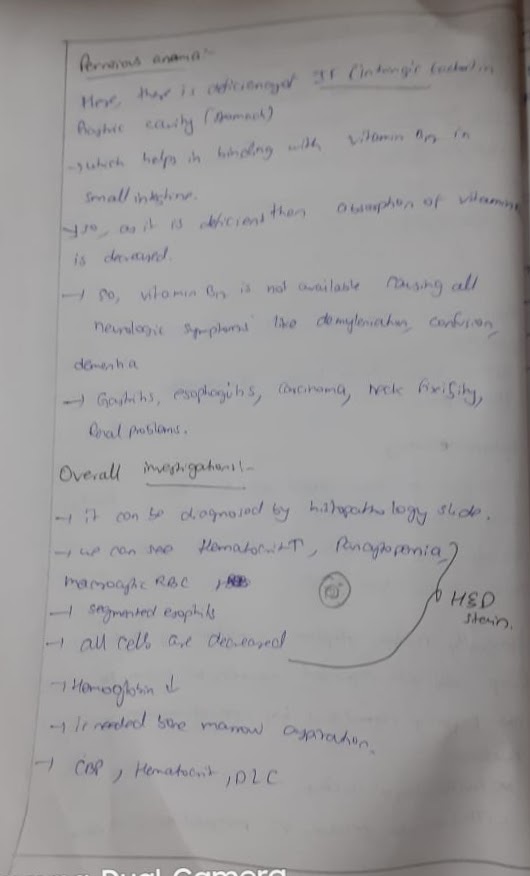 Pernicious anemia:-
Here, there is deficiency of IF (intrinsic factor) in
gastric cavity (stomach)
→ which helps in binding with vitamin B12 in
small intestine.
→ so, as it is deficient then absorption of vitamins
is decreased.
→ so, vitamin B12 is not available causing all
neurologic symptoms like demyleniation, confusion,
dementia
→ Gastritis, esophagitis, carcinoma, neck
problems.
Overall investigations:-
→ it can be diagnosed by histopathology slide.
→ we can see Hematocrit↑, Pancytopenia,
macrocytic RBC,
→ segmented
H&D
stain.
→ all cells are decreased
→ Hemoglobin ↓
→ If needed bone marrow aspiration.
→ CBP, Hematocrit, DLC
Dual Camera